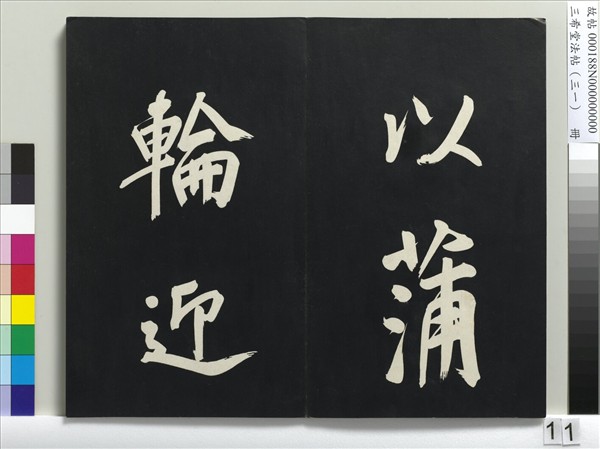 以蒲
輪迎
故帖 000188N000000000
三希堂法帖（三一） 冊
11